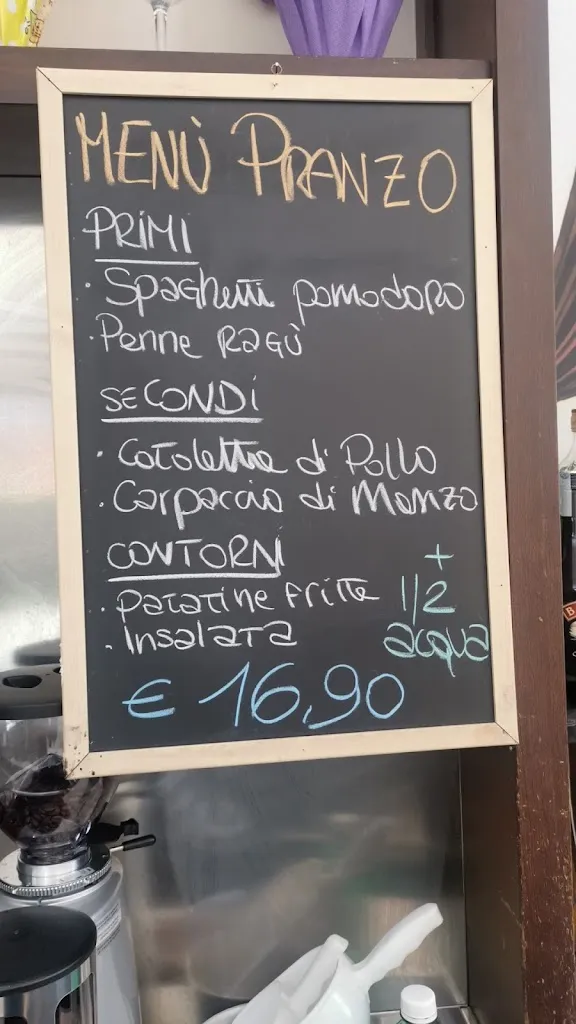 MENÙ PRANZO
PRIMI
· Spaghetti pomodoro
· Penne RAGÙ
SECONDI
· Cotoletta di Pollo
· Carpaccio di Manzo
CONTORNI
· Patatine fritte
· Insalata
+
1/2
acqua
€ 16,90